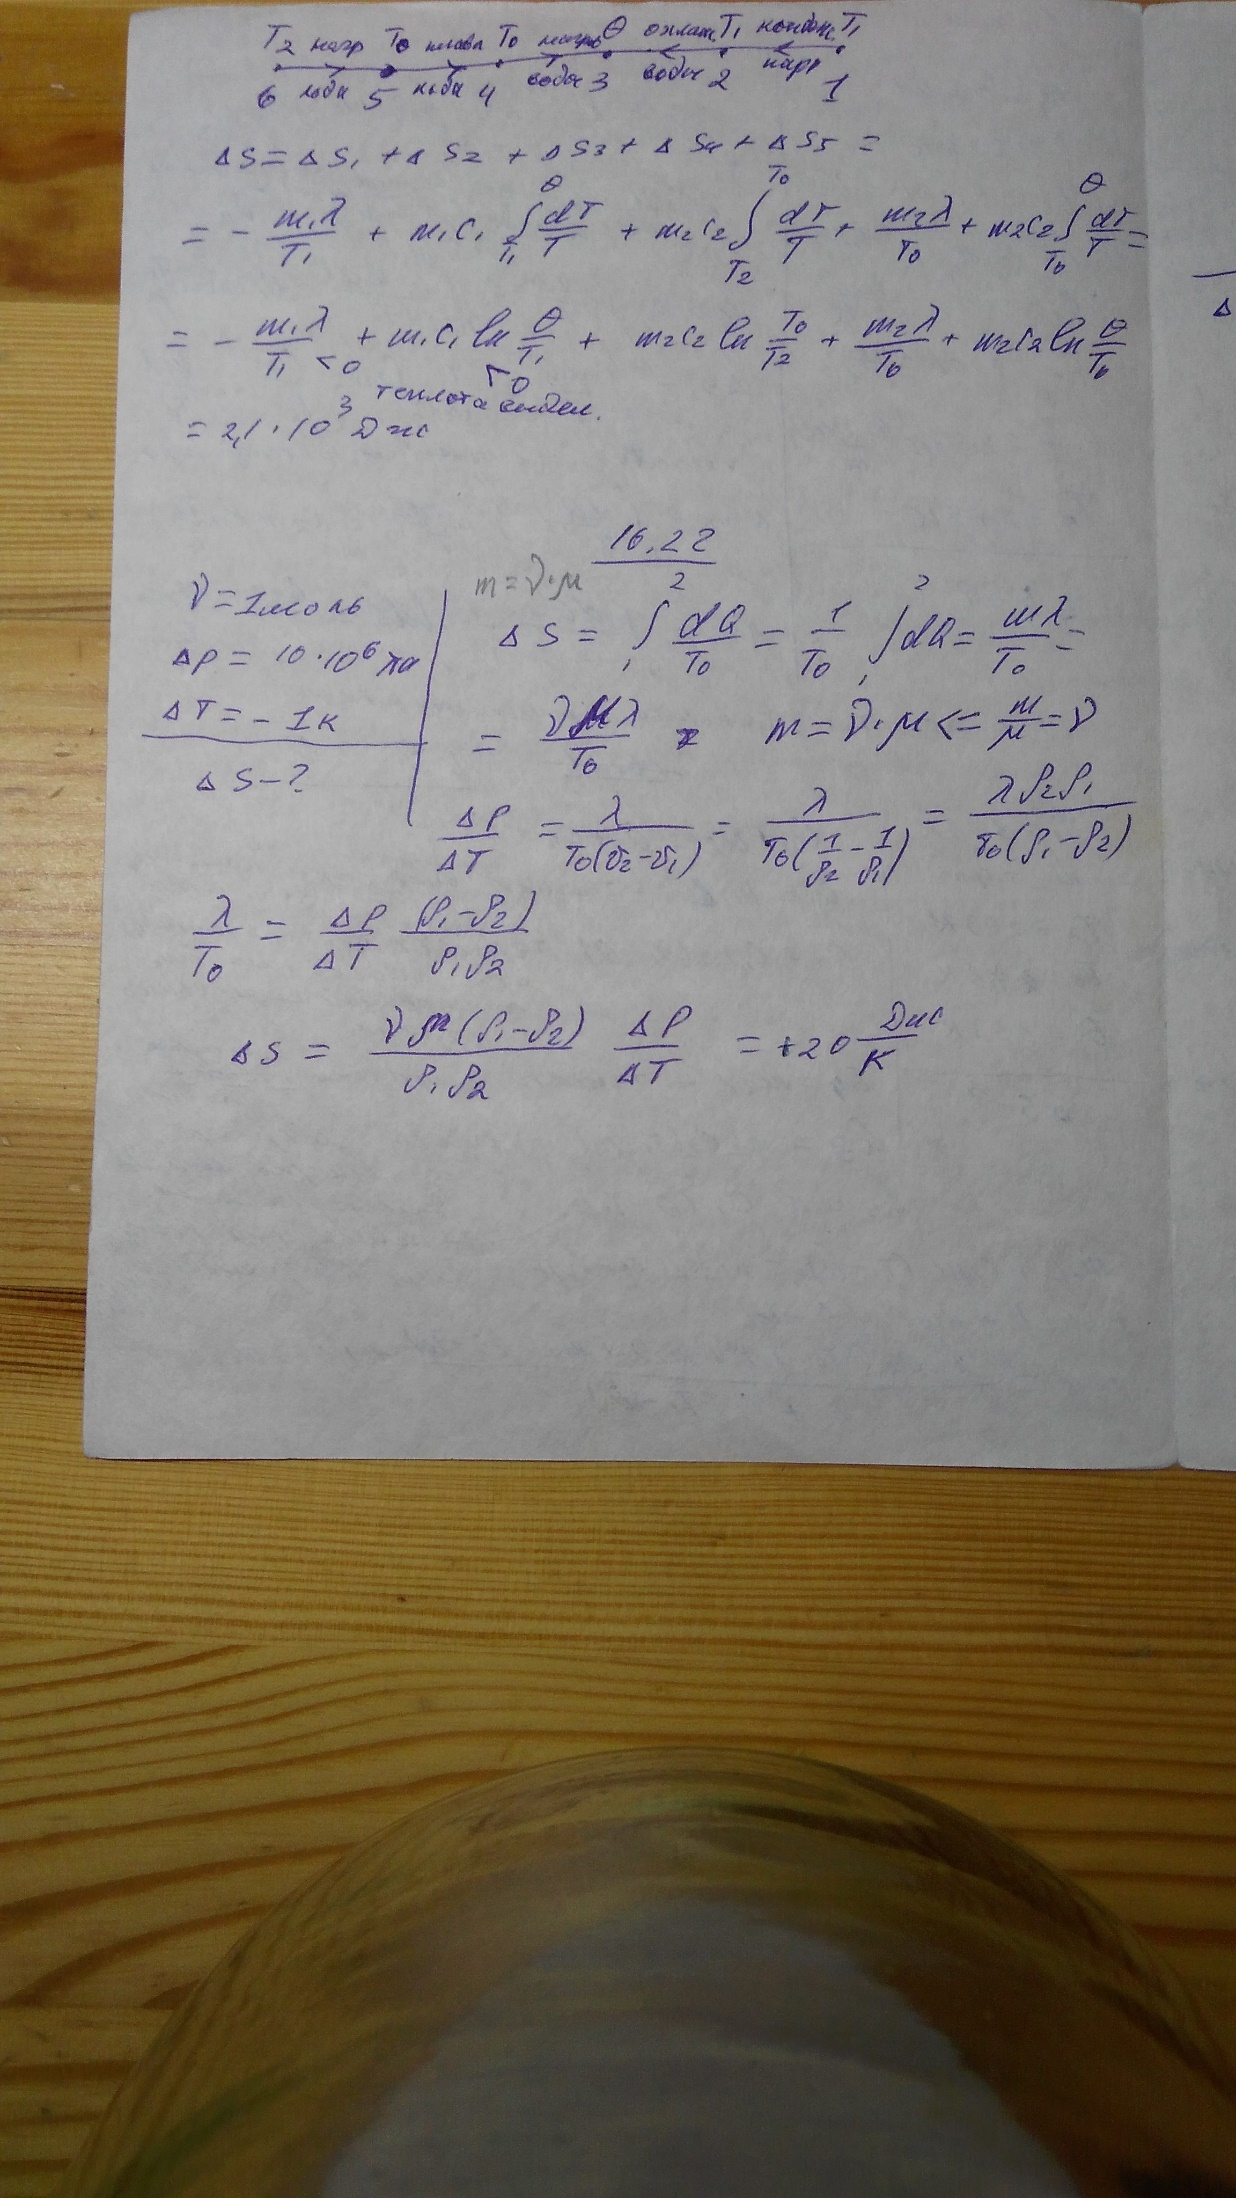 T₂ нагр T₀ плавл T₀ нагрев θ охлажд. T₁ конденс. T₁
6 льда 5 льда 4 воды 3 воды 2 пара 1
ΔS = ΔS₁ + ΔS₂ + ΔS₃ + ΔS₄ + ΔS₅ =
= - m₁λ/T₁ + m₁c₁ ∫_{T₁}^{θ} dT/T + m₂c₂ ∫_{T₂}^{T₀} dT/T + m₂λ/T₀ + m₂c₂ ∫_{T₀}^{θ} dT/T =
= - m₁λ/T₁ + m₁c₁ ln θ/T₁ + m₂c₂ ln T₀/T₂ + m₂λ/T₀ + m₂c₂ ln θ/T₀
<0 <0
теплота выдел.
= 2,1 · 10³ Дж
16.22
m = ν·μ
ν = 1 моль
ΔS = ∫₁² dQ/T₀ = 1/T₀ ∫₁² dQ = mλ/T₀ =
Δp = 10 · 10⁶ Па
ΔT = - 1К
= νμλ/T₀ m = ν·μ <= m/μ = ν
ΔS - ?
Δp/ΔT = λ/T₀(v₂-v₁) = λ/T₀(1/ρ₂ - 1/ρ₁) = λρ₂ρ₁/T₀(ρ₁-ρ₂)
λ/T₀ = Δp/ΔT (ρ₁-ρ₂)/ρ₁ρ₂
ΔS = νμ(ρ₁-ρ₂)/ρ₁ρ₂ Δp/ΔT = +20 Дж/К
Δ